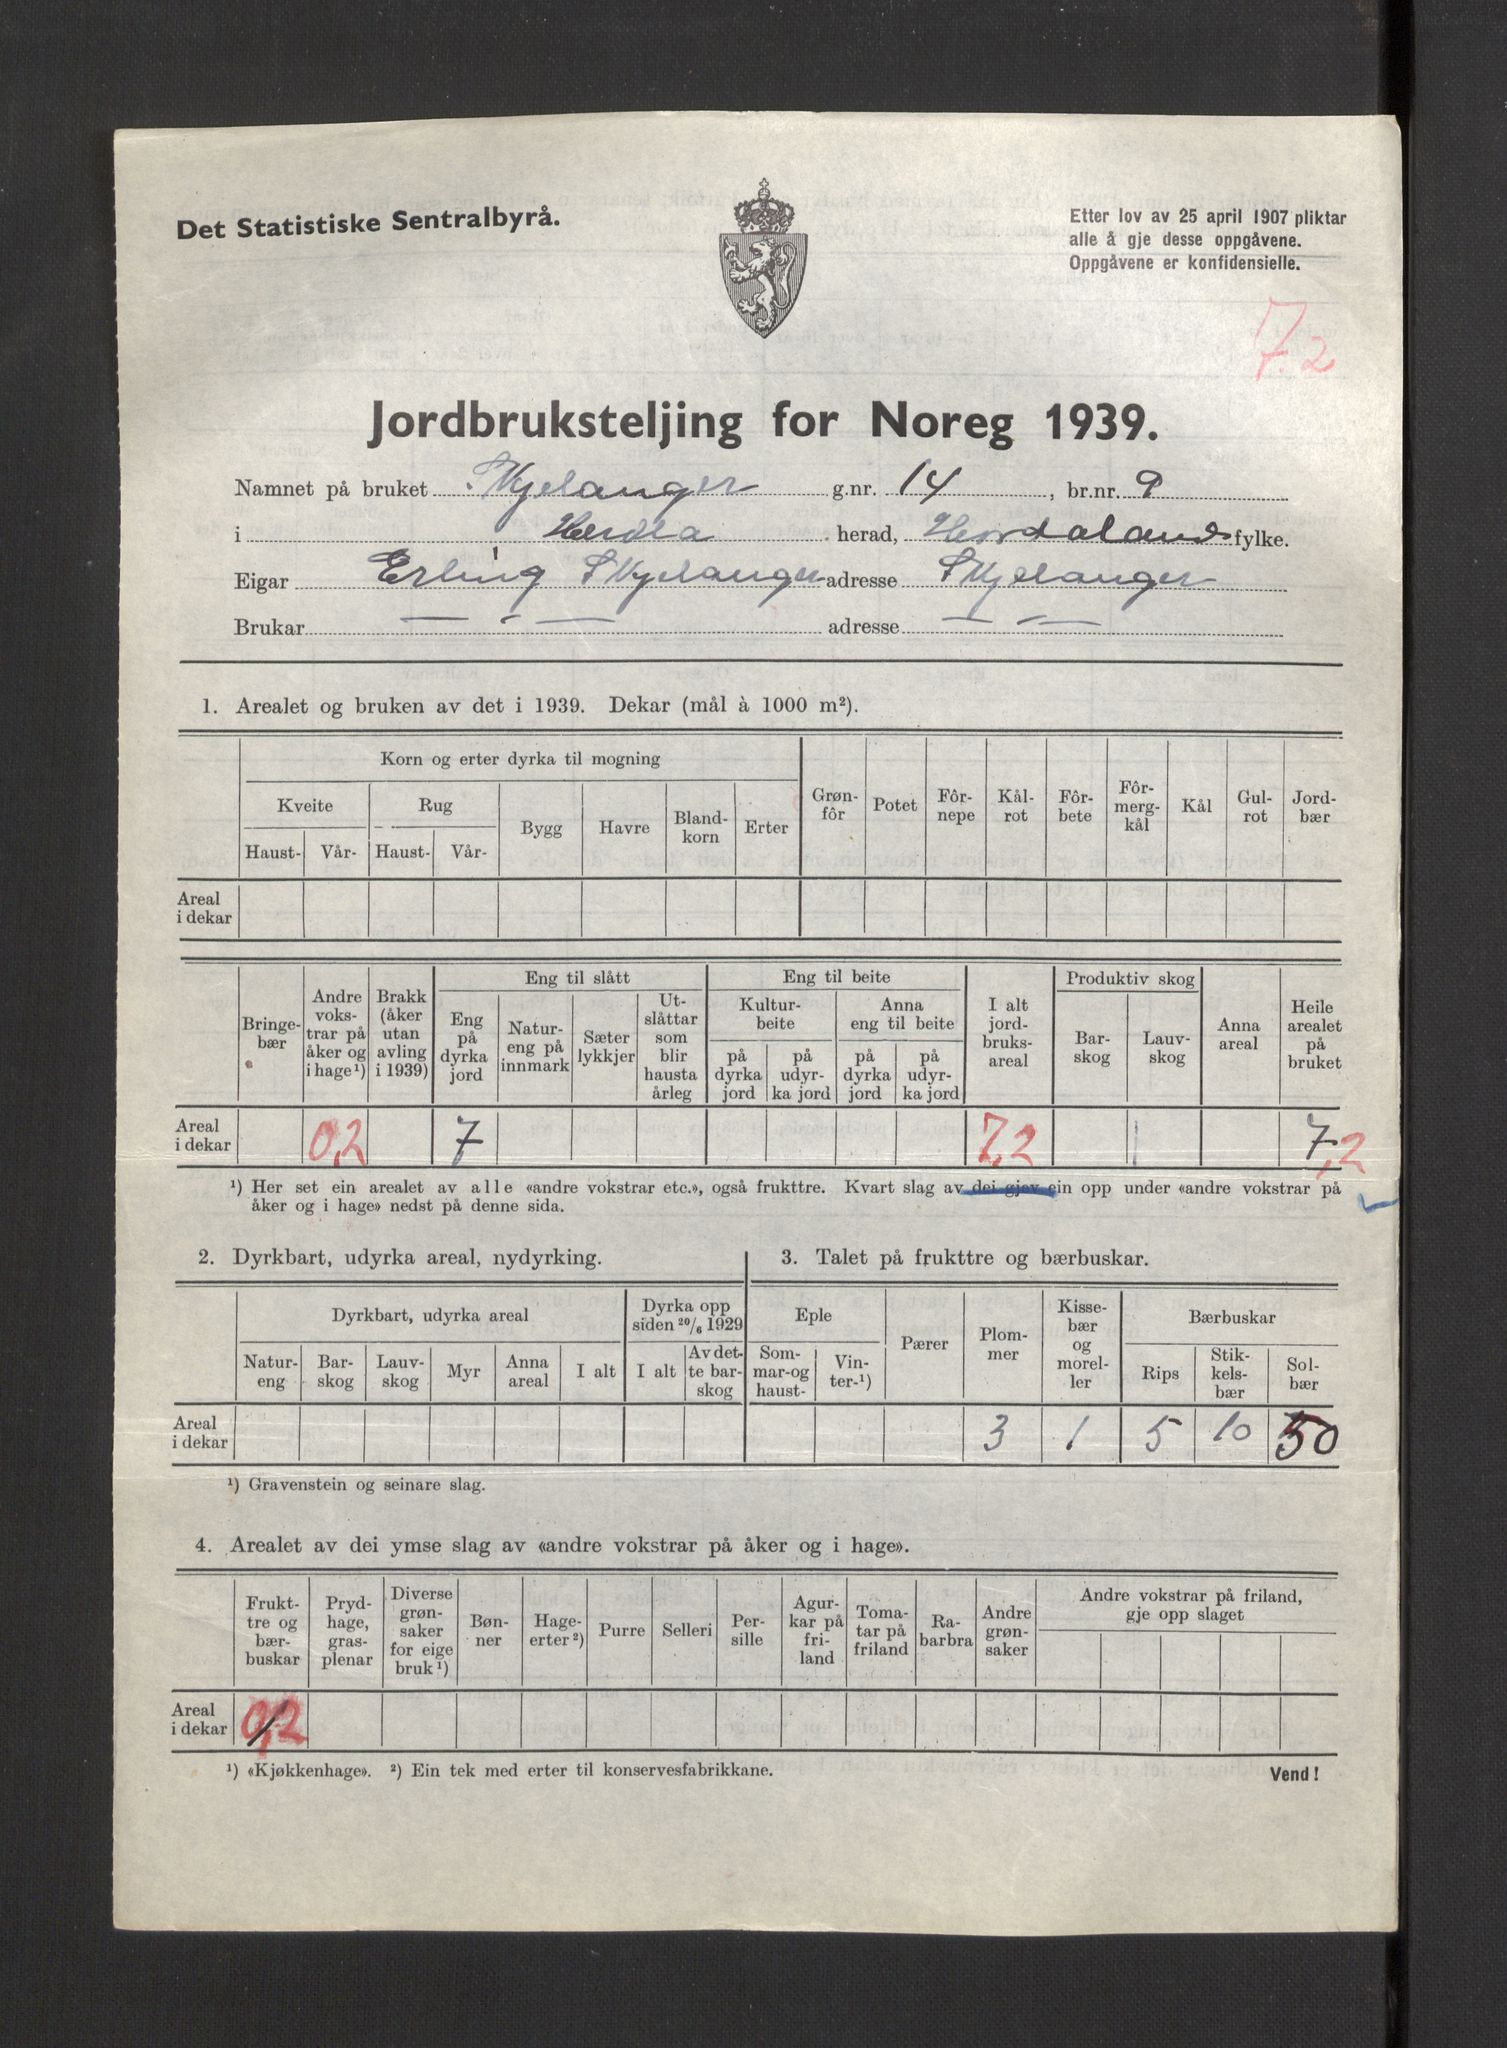 Det Statistiske Sentralbyrå.
Etter lov av 25 april 1907 pliktar
alle å gje desse oppgåvene.
Oppgåvene er konfidensielle.
7.2
Jordbruksteljing for Noreg 1939.
Namnet på bruket Skjelanger g.nr. 14, br.nr. 9
i Herdla herad, Hordalands fylke.
Eigar Erling Skjelanger adresse Skjelanger
Brukar — " — adresse — " —
1. Arealet og bruken av det i 1939. Dekar (mål à 1000 m²).
Korn og erter dyrka til mogning
Kveite Rug
Haust- Vår- Haust- Vår- Bygg Havre Bland-korn Erter Grøn-fôr Potet Fôr-nepe Kål-rot Fôr-bete Fôr-merg-kål Kål Gul-rot Jord-bær
Areal
i dekar
Eng til slått Eng til beite Produktiv skog
Kultur-beite Anna eng til beite
Bringe-bær Andre voks-trar på åker og i hage¹) Brakk (åker utan avling i 1939) Eng på dyrka jord Natur-eng på innmark Sæter lykkjer Ut-slåttar som blir hausta årleg på dyrka jord på udyr-ka jord på dyrka jord på udyr-ka jord I alt jord-bruks-areal Bar-skog Lauv-skog Anna areal Heile arealet på bruket
Areal
i dekar 0,2 7 7,2 1 7,2
¹) Her set ein arealet av alle «andre vokstrar etc.», også frukttre. Kvart slag av dei gjev ein opp under «andre vokstrar på
åker og i hage» nedst på denne sida.
2. Dyrkbart, udyrka areal, nydyrking.
Dyrkbart, udyrka areal Dyrka opp siden 20/6 1929
Natur-eng Bar-skog Lauv-skog Myr Anna areal I alt I alt Av det-te bar-skog
Areal
i dekar
3. Talet på frukttre og bærbuskar.
Eple Pærer Plom-mer Kisse-bær og morel-ler Bærbuskar
Som-mar-og haust- Vin-ter-¹) Rips Stik-kels-bær Sol-bær
3 1 5 10 50
¹) Gravenstein og seinare slag.
4. Arealet av dei ymse slag av «andre vokstrar på åker og i hage».
Frukt-tre og bær-buskar Pryd-hage, gras-plenar Diverse grøn-saker for eige bruk¹) Bøn-ner Hage-erter²) Purre Selleri Per-sille Agur-kar på fri-land Toma-tar på friland Ra-barbra Andre grøn-saker Andre vokstrar på friland, gje opp slaget
Areal
i dekar 0,2
¹) «Kjøkkenhage». ²) Ein tek med erter til konservesfabrikkane.
Vend!